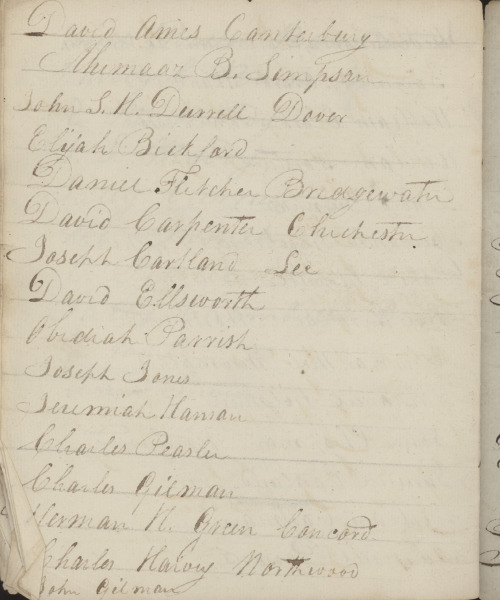 David Ames Canterbury
Ahimaaz B. Simpson
John S. H. Durrell Dover
Elijah Bickford
Daniel Fletcher Bridgewater
David Carpenter Chichester
Joseph Cartland Lee
David Ellsworth
Obidiah Parrish
Joseph Jones
Jeremiah Hanson
Charles Peaslee
Charles Gilman
Herman N. Green Concord
Charles Harvey Northwood
John Gilman